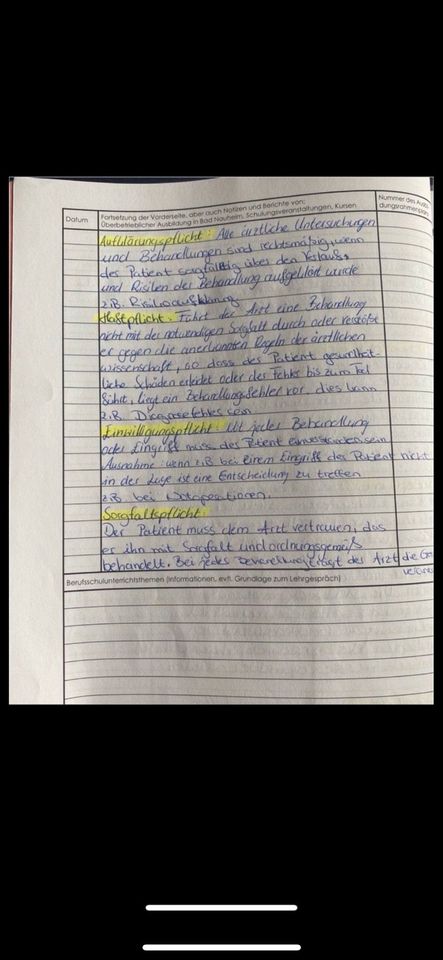 Datum
Fortsetzung der Vorderseite, aber auch Notizen und Berichte von:
Überbetrieblicher Ausbildung in Bad Nauheim, Schulungsveranstaltungen, Kursen.
Nummer des Ausbil-
dungsrahmenplans
Aufklärungspflicht: Alle ärztliche Untersuchungen
und Behandlungen sind rechtsmäßig, wenn
der Patient sorgfältig über den Verlauf,
und Risiken der Behandlung aufgeklärt wurde
z.B. Risikoaufklärung
Haftpflicht: Führt der Arzt eine Behandlung
nicht mit der notwendigen Sorgfalt durch oder verstößt
er gegen die anerkannten Regeln der ärztlichen
wissenschaft, so dass der Patient gesundheit-
liche Schäden erleidet oder der Fehler bis zum Tod
führt, liegt ein Behandlungsfehler vor, dies kann
z.B. Diagnosefehler sein
Einwilligungspflicht: Mit jeder Behandlung
oder Eingriff muss der Patient einverstanden sein
Ausnahme: wenn z.B bei einem Eingriff der Patient nicht
in der Lage ist eine Entscheidung zu treffen
z.B bei Notoperationen.
Sorgfaltspflicht:
Der Patient muss dem Arzt vertrauen, das
er ihn mit Sorgfalt und ordnungsgemäß
behandelt. Bei jeder Behandlung trägt der Arzt die
Berufsschulunterrichtsthemen (Informationen, evtl. Grundlage zum Lehrgespräch)